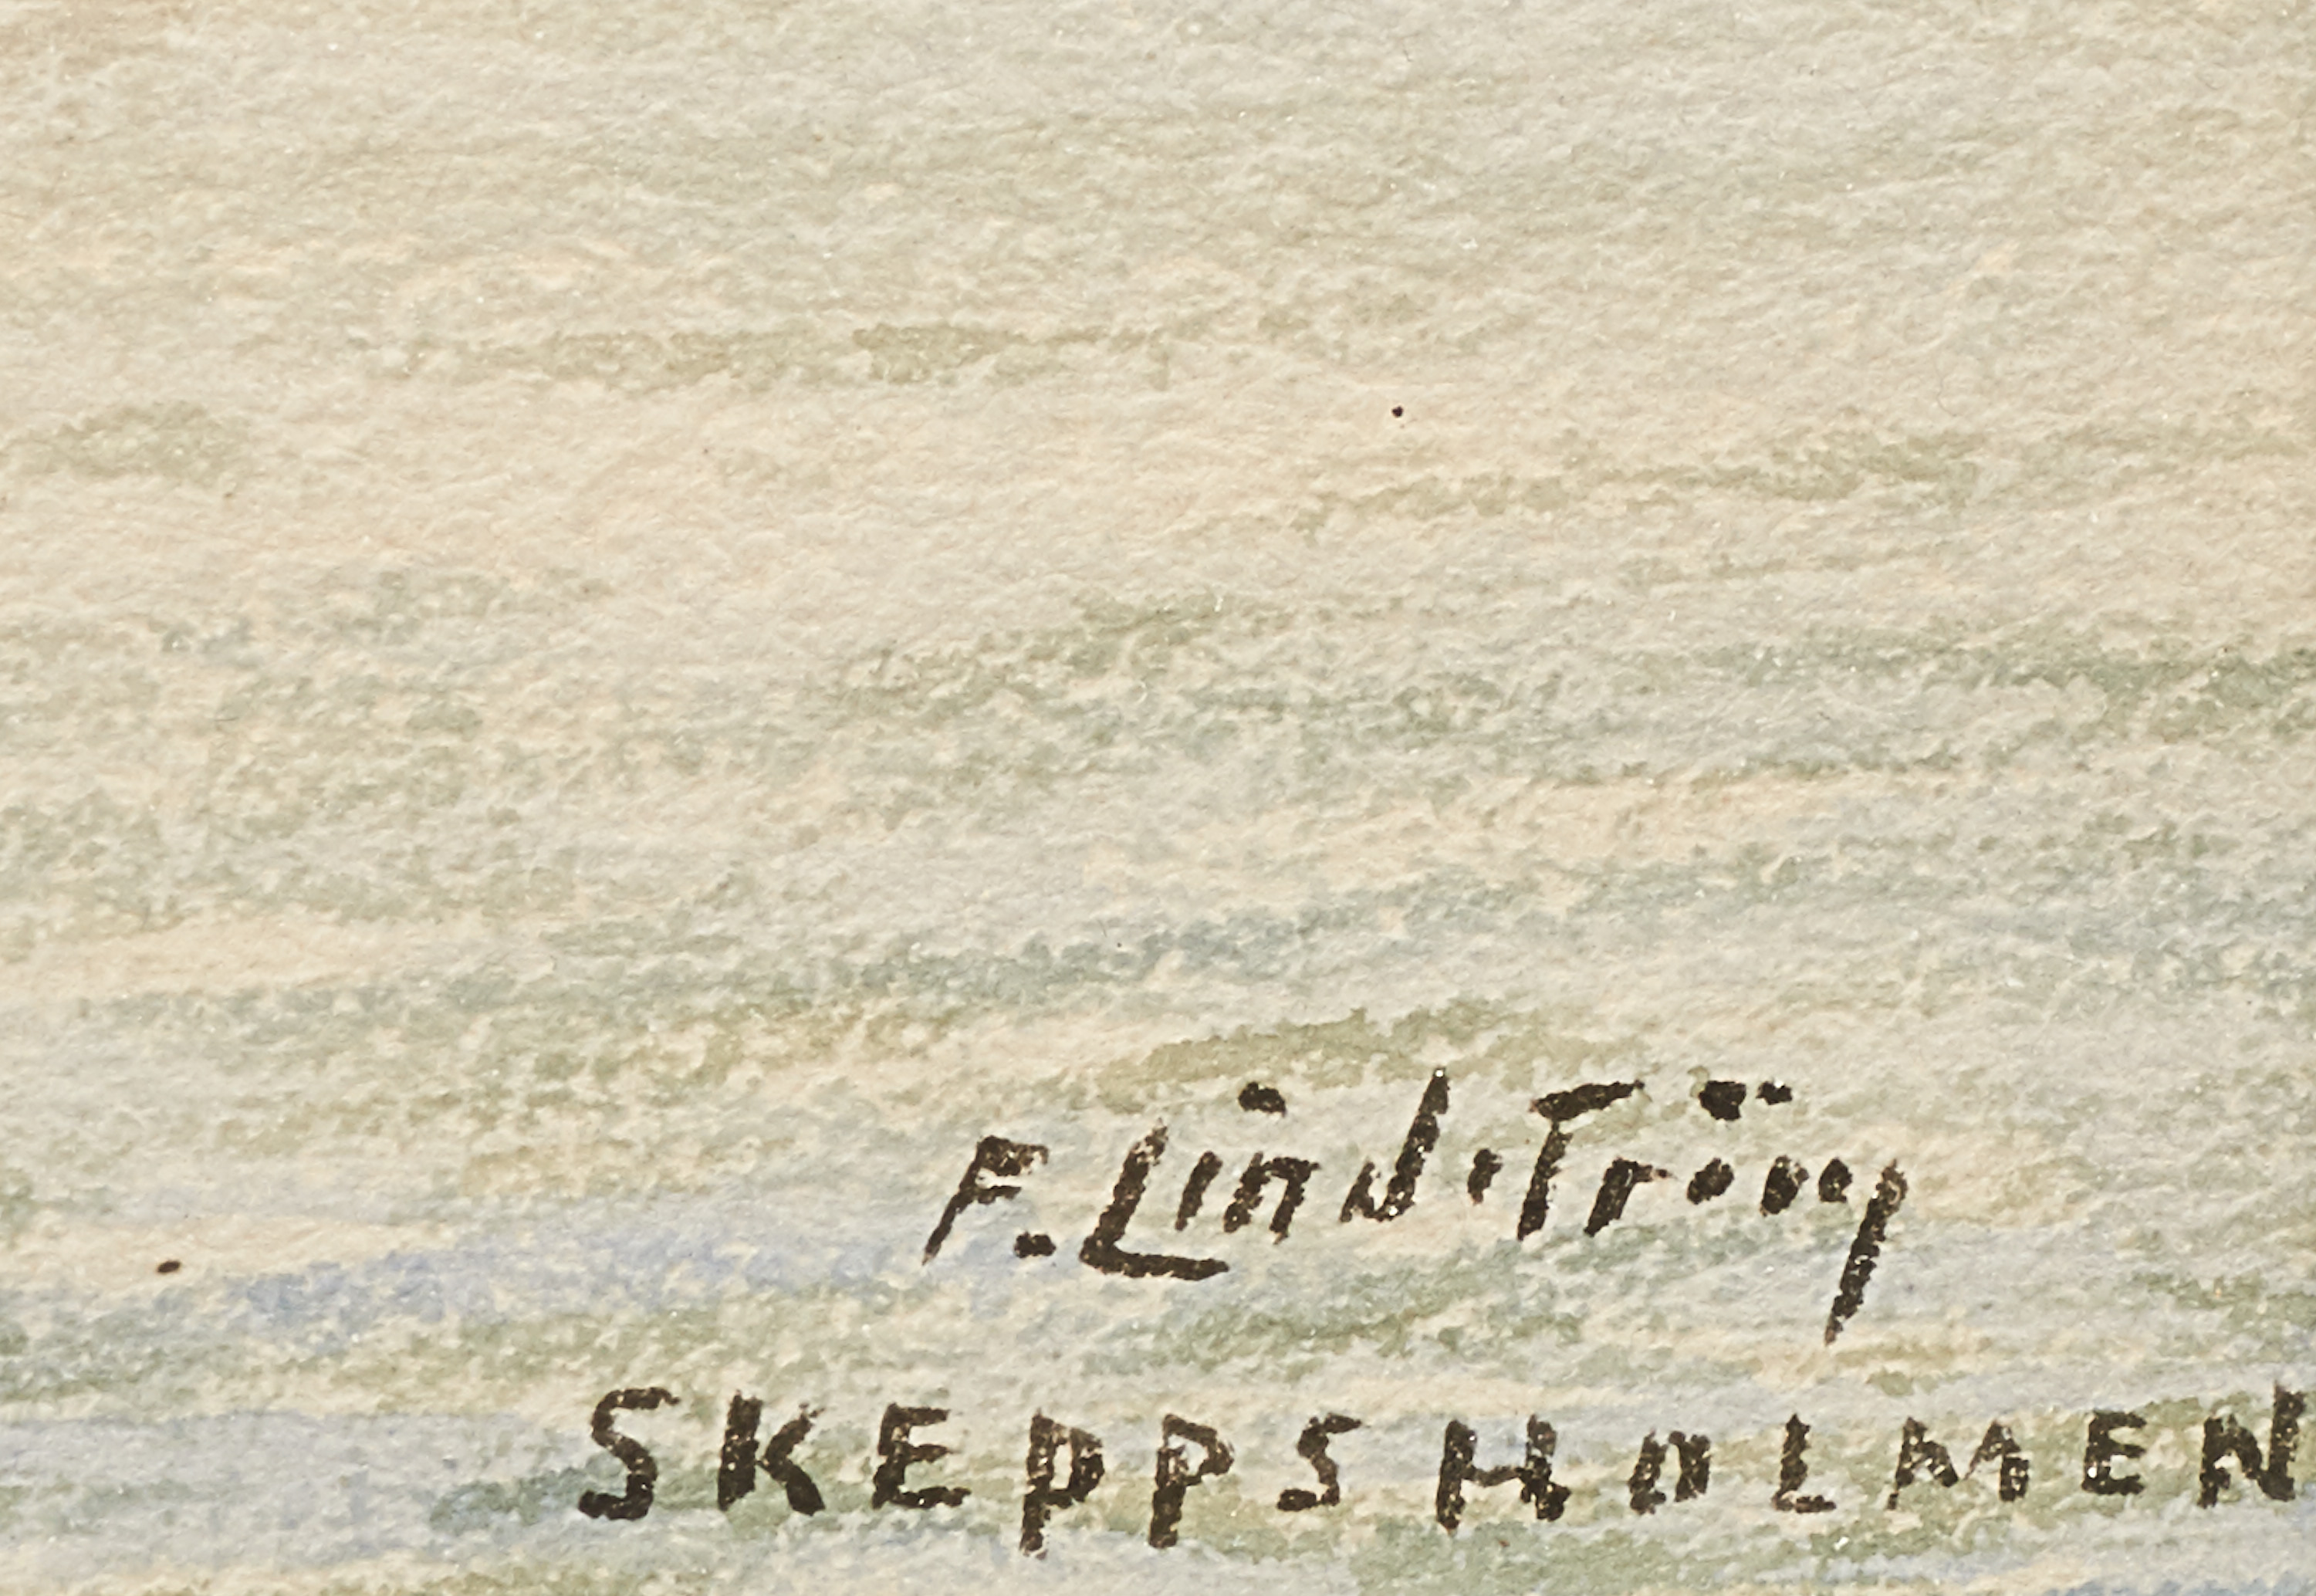 F. Lindström
SKEPPSHOLMEN